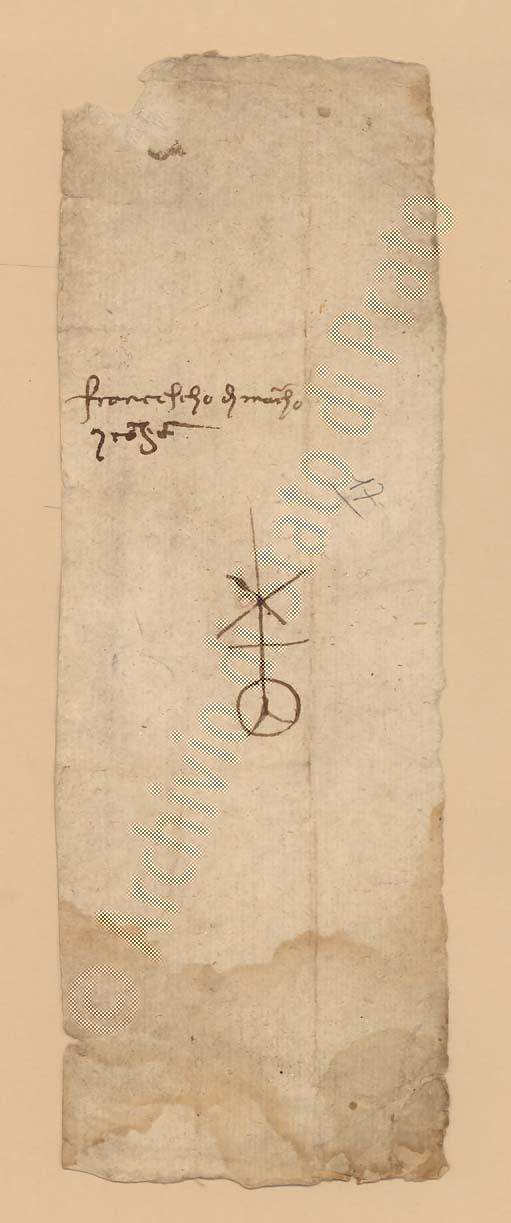 francescho di marcho
17
© Archivio di Stato di Prato